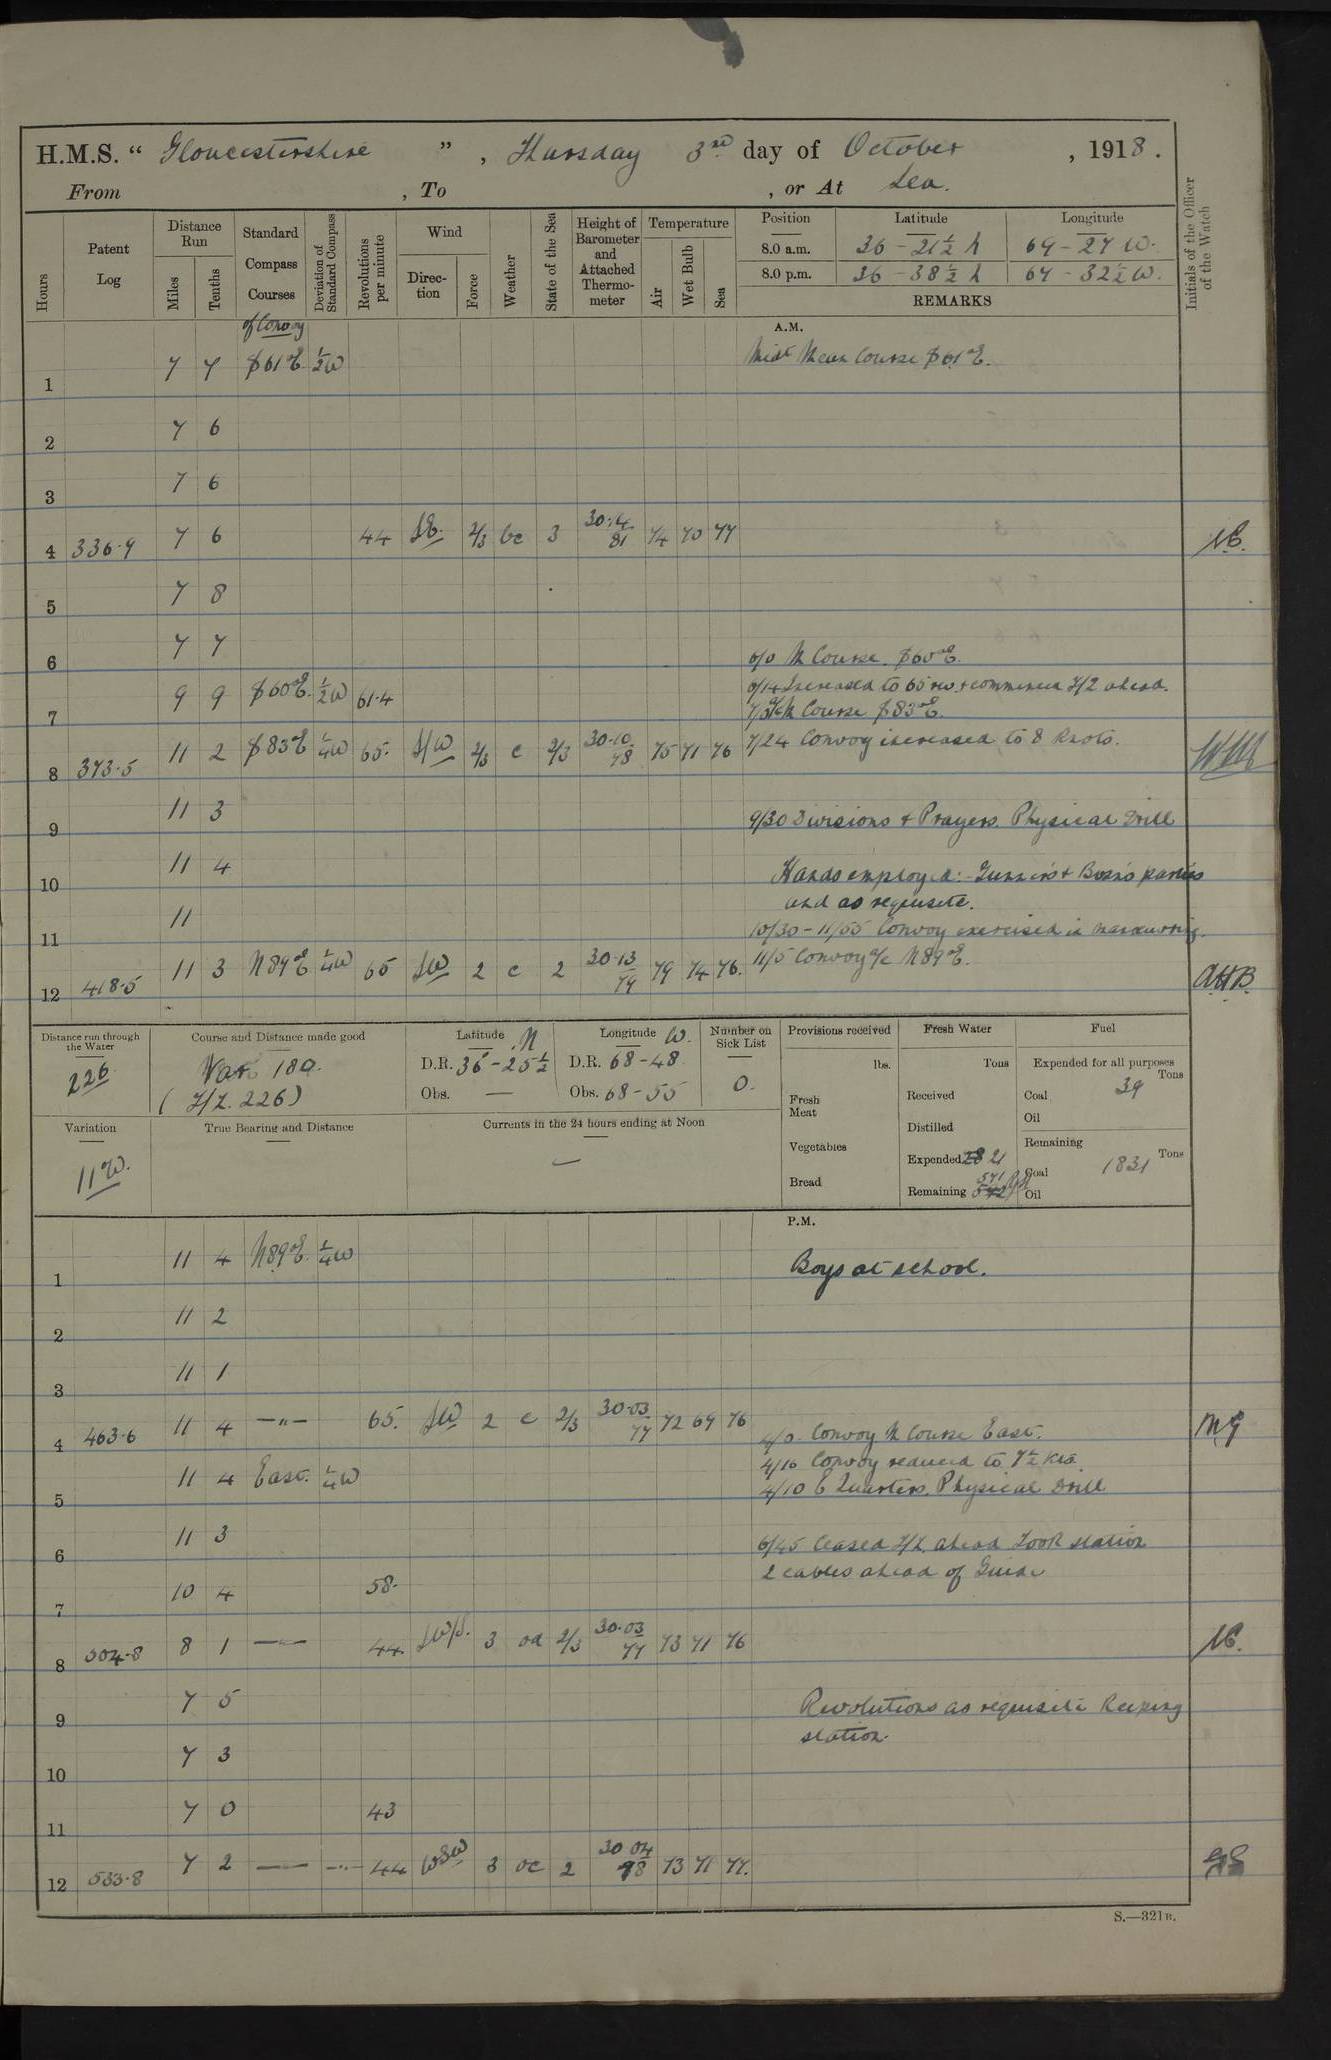 H.M.S. “ Gloucestershire ” , Thursday 3rd day of October , 1918 .
From , To , or At Sea.
Hours
Patent Log
Distance Run
Miles
Tenths
Standard Compass Courses
Deviation of Standard Compass
Revolutions per minute
Wind
Direction
Force
Weather
State of the Sea
Height of Barometer and Attached Thermometer
Temperature
Air
Wet Bulb
Sea
Position Latitude Longitude
8.0 a.m. 36 - 21½ N 69 - 27 W.
8.0 p.m. 36 - 38½ N 67 - 32½ W.
REMARKS
Initials of the Officer of the Watch
A.M.
of Convoy
1 7 7 S61°E. ½W Midt Mean Course S61°E.
2 7 6
3 7 6
4 336.9 7 6 44 SE. 2/3 bc 3 30.14 81 74 70 77
5 7 8
6 7 7 6/0 M Course. S60°E.
7 9 9 S60°E. ½W 61.4 6/14 Increased to 65 rev. & commenced Z/Z ahead.
M Course S83°E.
8 373.5 11 2 S83°E ¼W 65. S/W 2/3 c 2/3 30.10 78 75 71 76 7/24 Convoy increased to 8 Knots.
9 11 3 9/30 Divisions & Prayers. Physical Drill
10 11 4 Hands employed:- Gunner's & Bosn's parties
and as requisite.
11 11 10/30 - 11/55 Convoy exercised in manœuvring.
12 418.5 11 3 N89°E ¼W 65 SW 2 c 2 30.13 79 79 74 76. 11/5 Convoy a/c N89°E. AHB.
Distance run through the Water
226
Course and Distance made good
Var 180.
( Z/Z. 226)
Latitude N
D.R. 36-25½
Obs. —
Longitude W.
D.R. 68-48
Obs. 68-55
Number on Sick List
0.
Provisions received
lbs.
Fresh Meat
Vegetables
Bread
Fresh Water
Tons
Received
Distilled
Expended 28 21
Remaining 542 541
Fuel
Expended for all purposes
Tons
Coal 39
Oil
Remaining
Tons
Coal 1831
Oil
Variation
11°W.
True Bearing and Distance
Currents in the 24 hours ending at Noon
—
P.M.
1 11 4 N89°E. ¼W Boys at school.
2 11 2
3 11 1
4 463.6 11 4 —"— 65. SW 2 c 2/3 30.03 77 72 69 76 4/0 Convoy M Course East. MG
4/10 Convoy reduced to 7½ Kts.
5 11 4 East. ¼W 4/10 E Quarters. Physical Drill
6 11 3 6/45 Ceased Z/Z ahead Took station
2 cables ahead of Guide
7 10 4 58.
8 504.8 8 1 —"— 44. SW/S. 3 oa 2/3 30.03 77 73 71 76
9 7 5 Revolutions as requisite keeping
station.
10 7 3
11 7 0 43
12 533.8 7 2 —"— —"— 44 WSW 3 oc 2 30 04 78 73 71 77.
S.—321B.